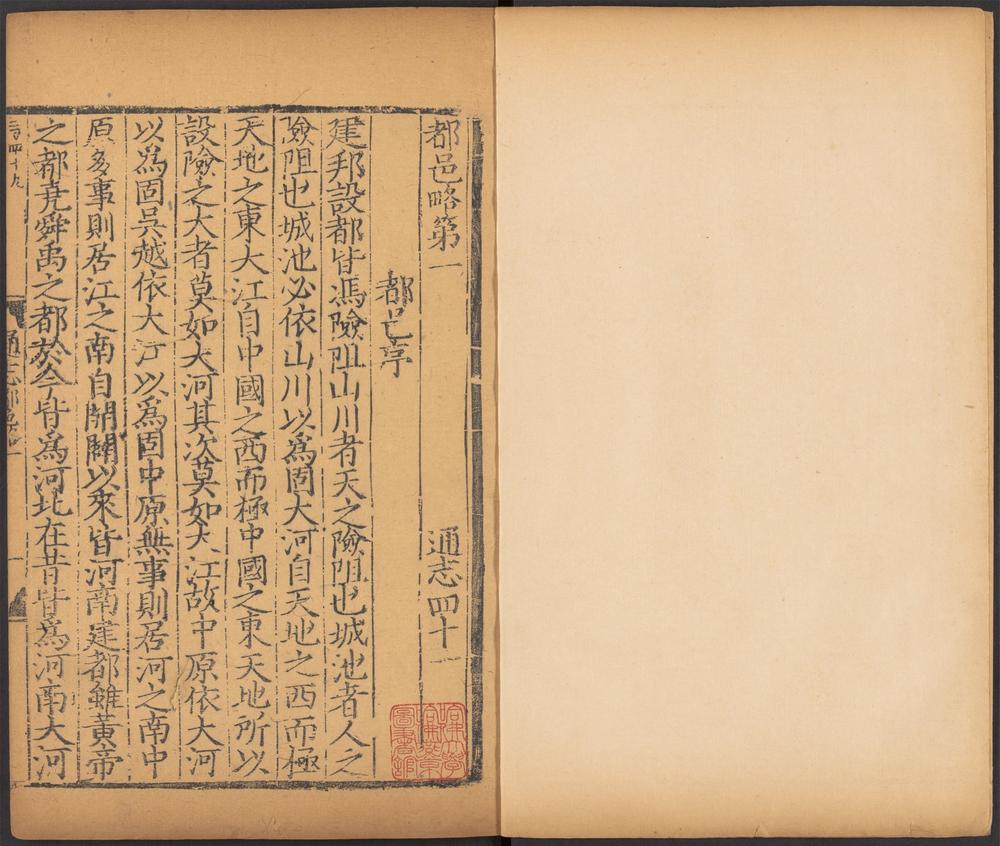 都邑略第一　通志四十一
都邑序
建邦設都皆馮險阻山川者天之險阻也城池者人之
險阻也城池必依山川以爲固大河自天地之西而極
天地之東大江自中國之西而極中國之東天地所以
設險之大者莫如大河其次莫如大江故中原依大河
以爲固吳越依大江以爲固中原無事則居河之南中
原多事則居江之南自開闢以來皆河南建都雖黃帝
之都堯舜禹之都於今皆爲河北在昔皆爲河南大河
通志都邑畧一